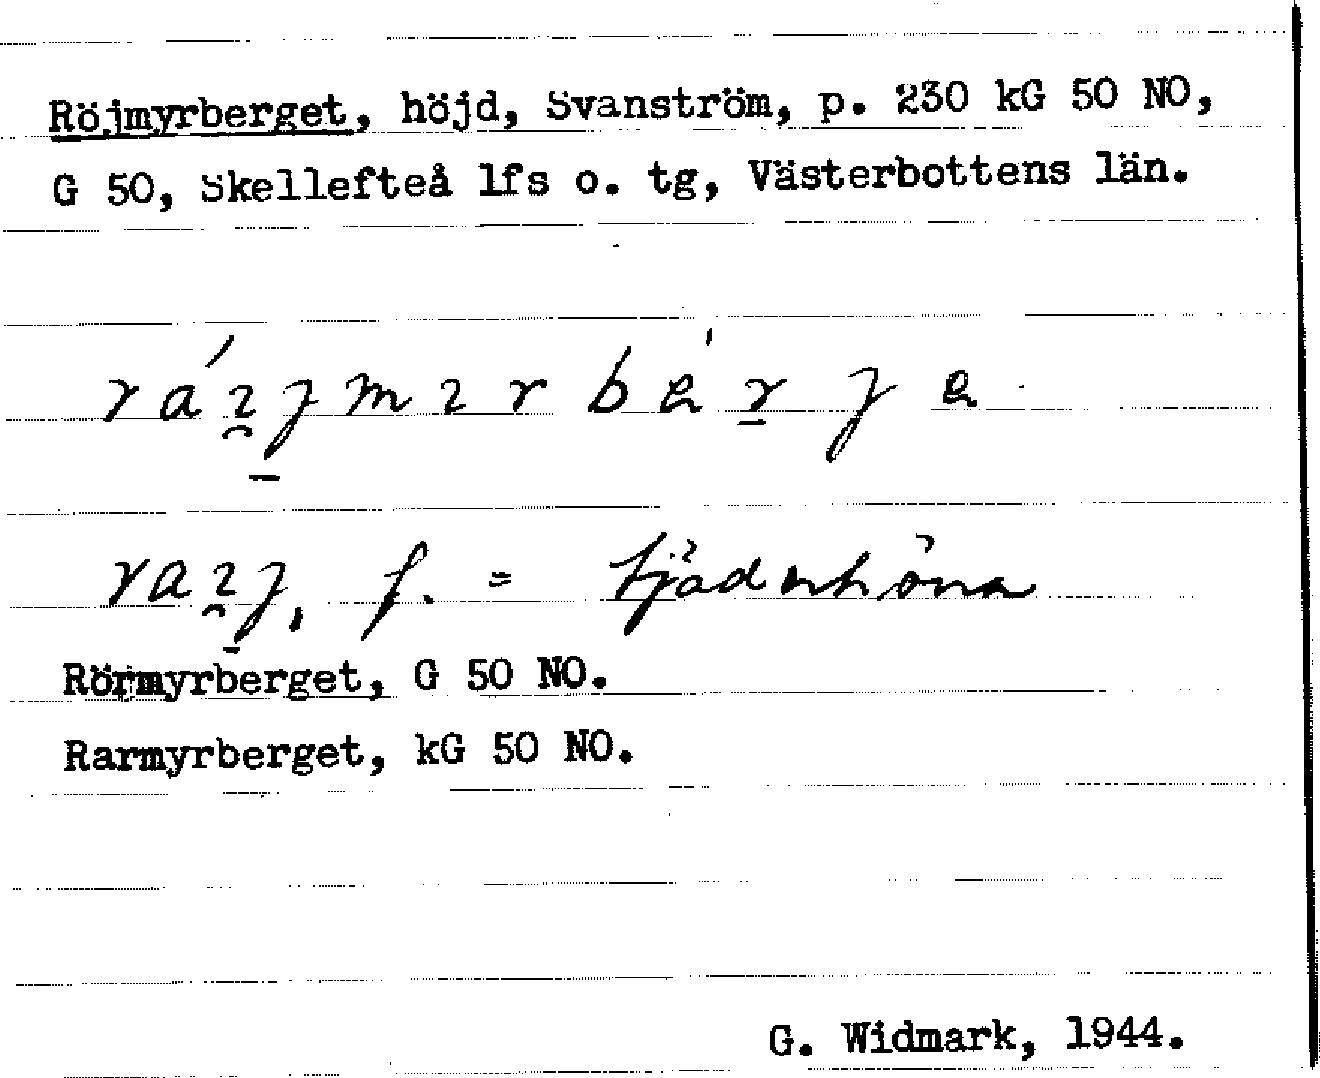 Röjmyrberget, höjd, Svanström, p. 230 kG 50 NO,
G 50, Skellefteå lfs o. tg, Västerbottens län.
f. = tjäderhöna
Rörmyrberget, G 50 NO.
Rarmyrberget, kG 50 NO.
G. Widmark, 1944.